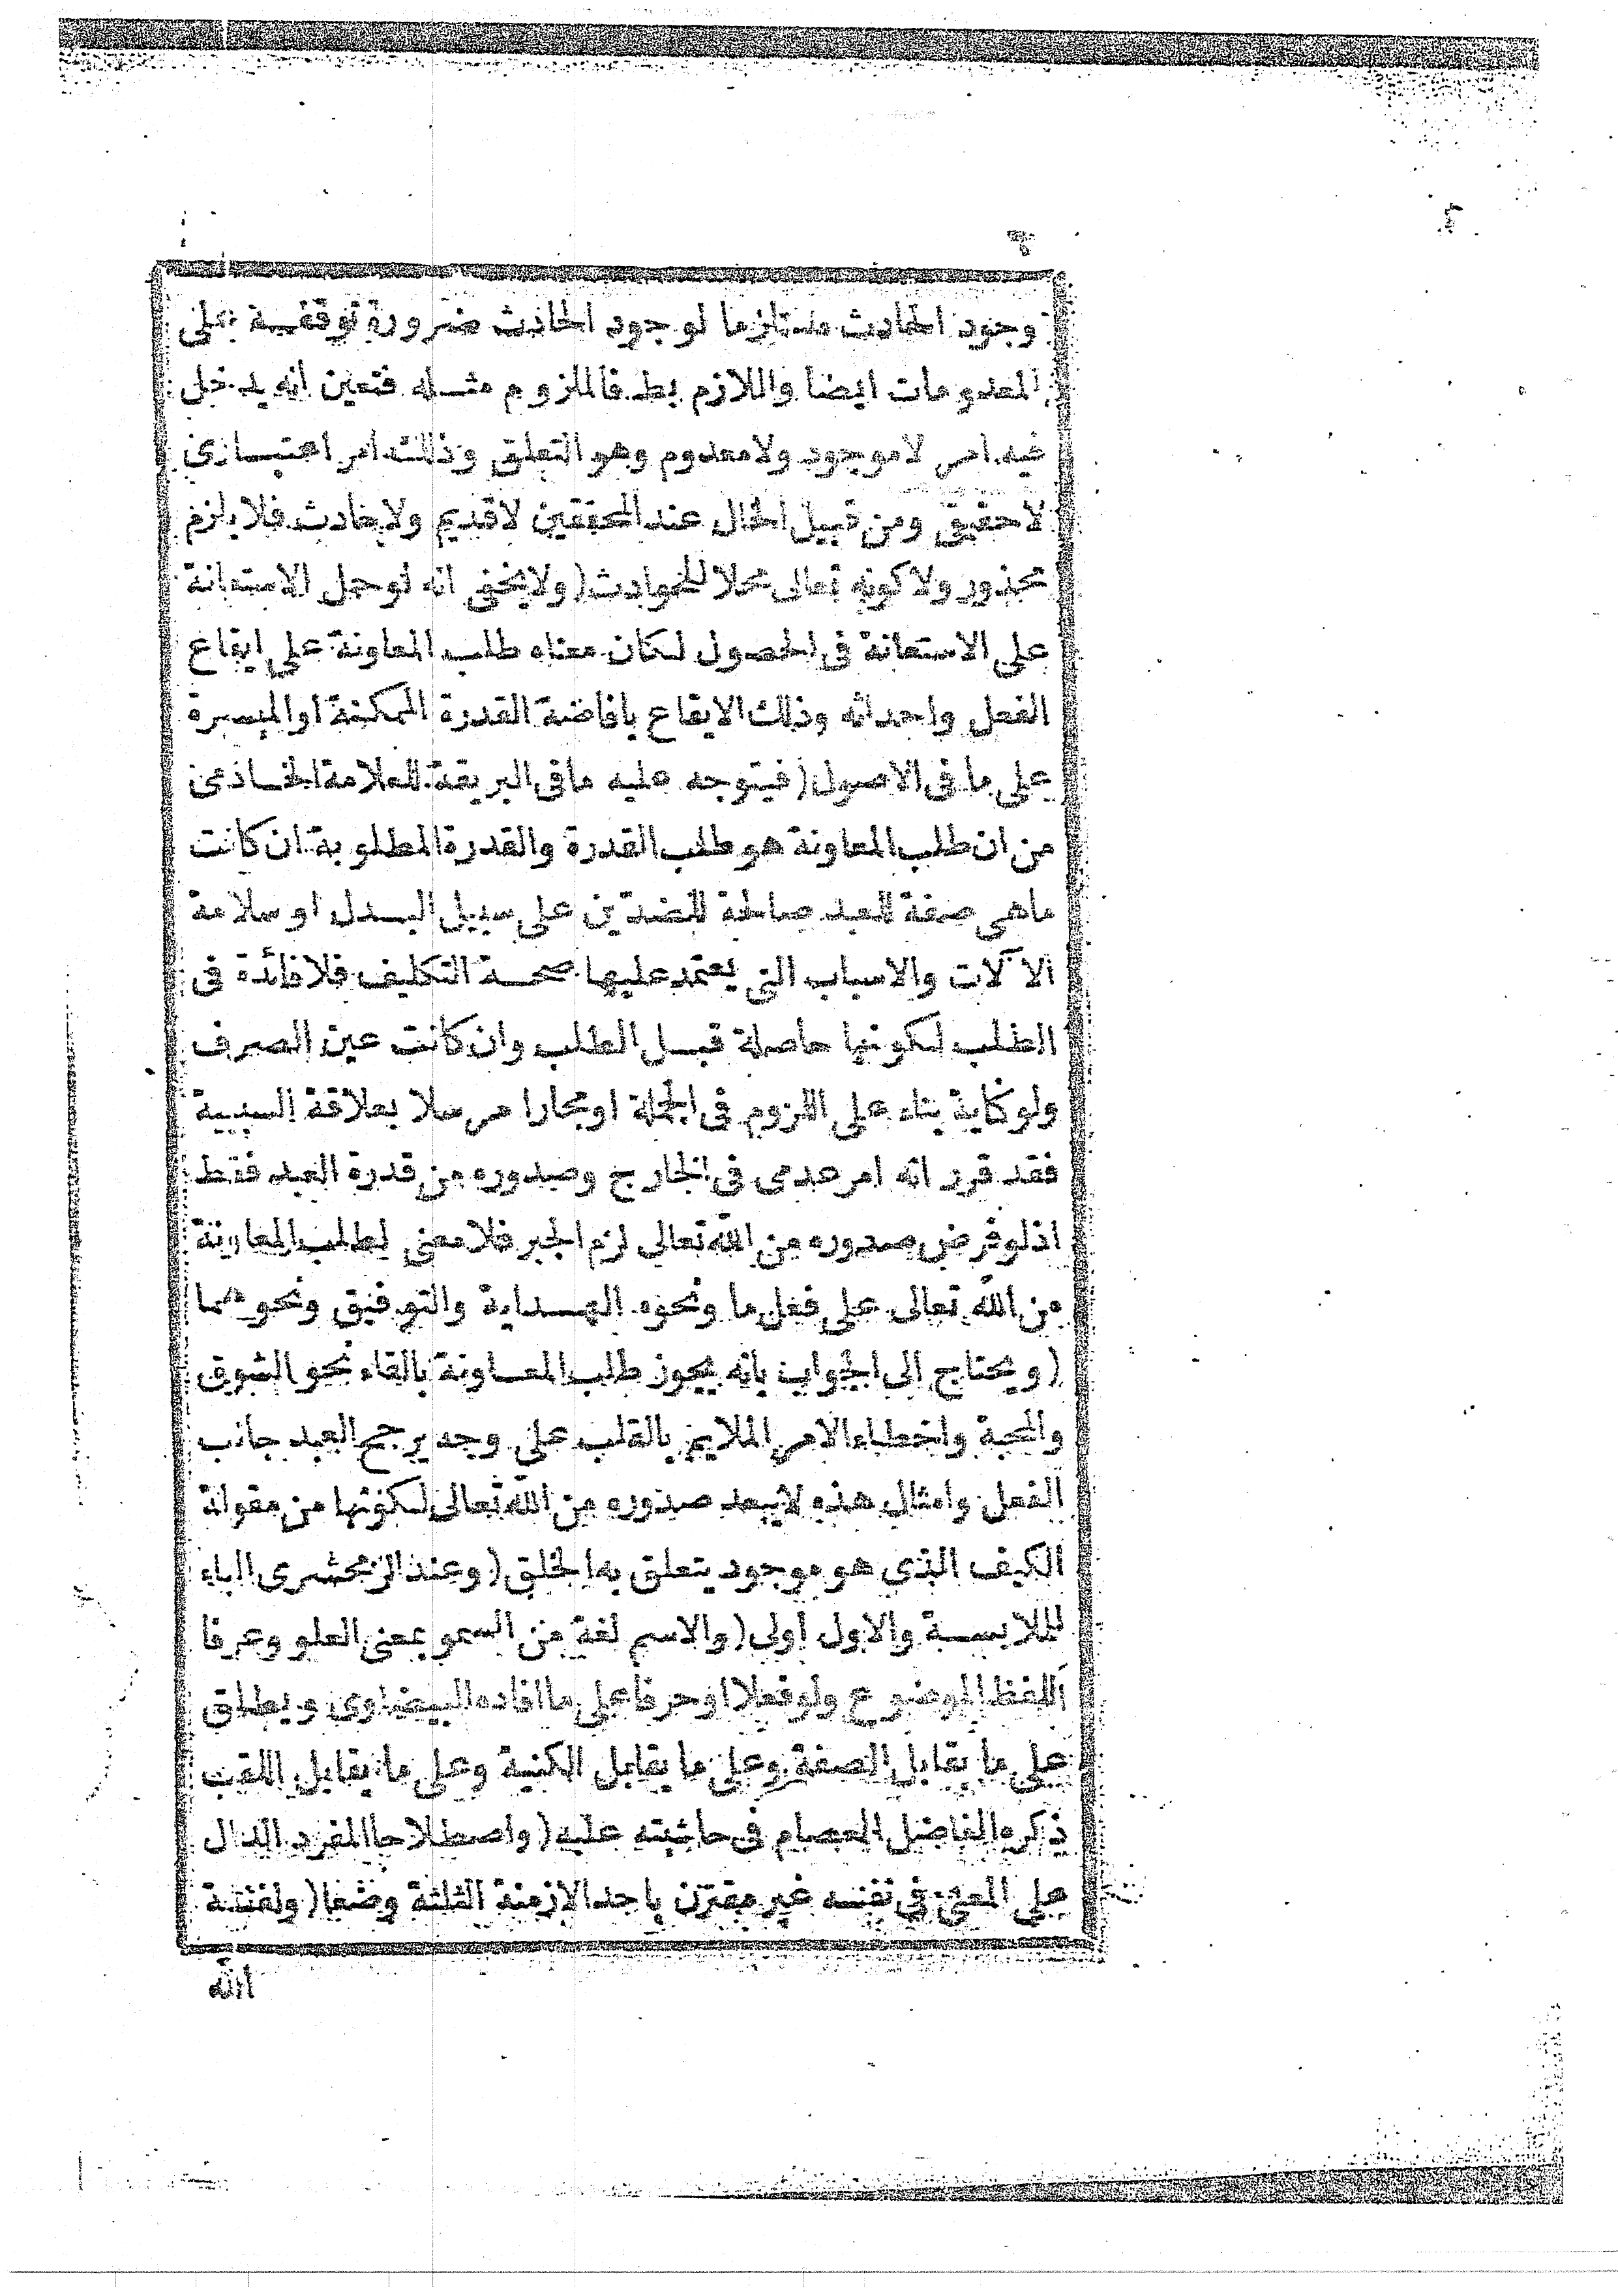 وجود الحادث مستلزما لوجود الحادث ضرورة توقفه على
المعدومات ايضا واللازم بط فالملزوم مثله فتعين انه يدخل
فيه امر لا موجود ولا معدوم وهو التعلق وذلك امر اعتبارى
لا حقيق ومن قبيل الحال عند المحققين لا قديم ولا حادث فلا يلزم
محذور ولا كونه تعالى محلا للحوادث (ولا يخفى انه لو حمل الاستعانة
على الاستعانة فى الحصول لكان معناه طلب المعاونة على ايقاع
الفعل واحداثه وذلك الايقاع بافاضة القدرة الممكنة او الميسرة
على ما فى الاصول (فيتوجه عليه ما فى البريقة للعلامة الخادمى
من ان طلب المعاونة هو طلب القدرة والقدرة المطلوبة ان كانت
ما هى صفة للعبد صالحة للضدين على سبيل البدل او سلامة
الآلات والاسباب التى يعتمد عليها صحة التكليف فلا فائدة فى
الطلب لكونها حاصلة قبل الطلب وان كانت عين الصرف
ولو كناية بناء على اللزوم فى الجملة او مجازا مرسلا بعلاقة السببية
فقد قرر انه امر عدمى فى الخارج وصدوره من قدرة العبد فقط
اذ لو فرض صدوره من الله تعالى لزم الجبر فلا معنى لطلب المعاونة
من الله تعالى على فعل ما ونحوه الهداية والتوفيق ونحوهما
(ويحتاج الى الجواب بانه يجوز طلب المعاونة بالقاء نحو الشوق
والمحبة واخطاء الامر الملايم بالقلب على وجه يرجح العبد جانب
الفعل وامثال هذه لا يبعد صدوره من الله تعالى لكونها من مقولة
الكيف الذى هو موجود يتعلق به الخلق (وعند الزمخشرى الباء
للملابسة والاول اولى (والاسم لغة من السمو بمعنى العلو وعرفا
اللفظ الموضوع ولو فعلا او حرفا على ما افاده البيضاوى ويطلق
على ما يقابل الصفة وعلى ما يقابل الكنية وعلى ما يقابل اللقب
ذكره الفاضل العصام فى حاشيته عليه (واصطلاحا المفرد الدال
على المعنى فى نفسه غير مقترن باحد الازمنة الثلثة وضعا (ولفظة
الله